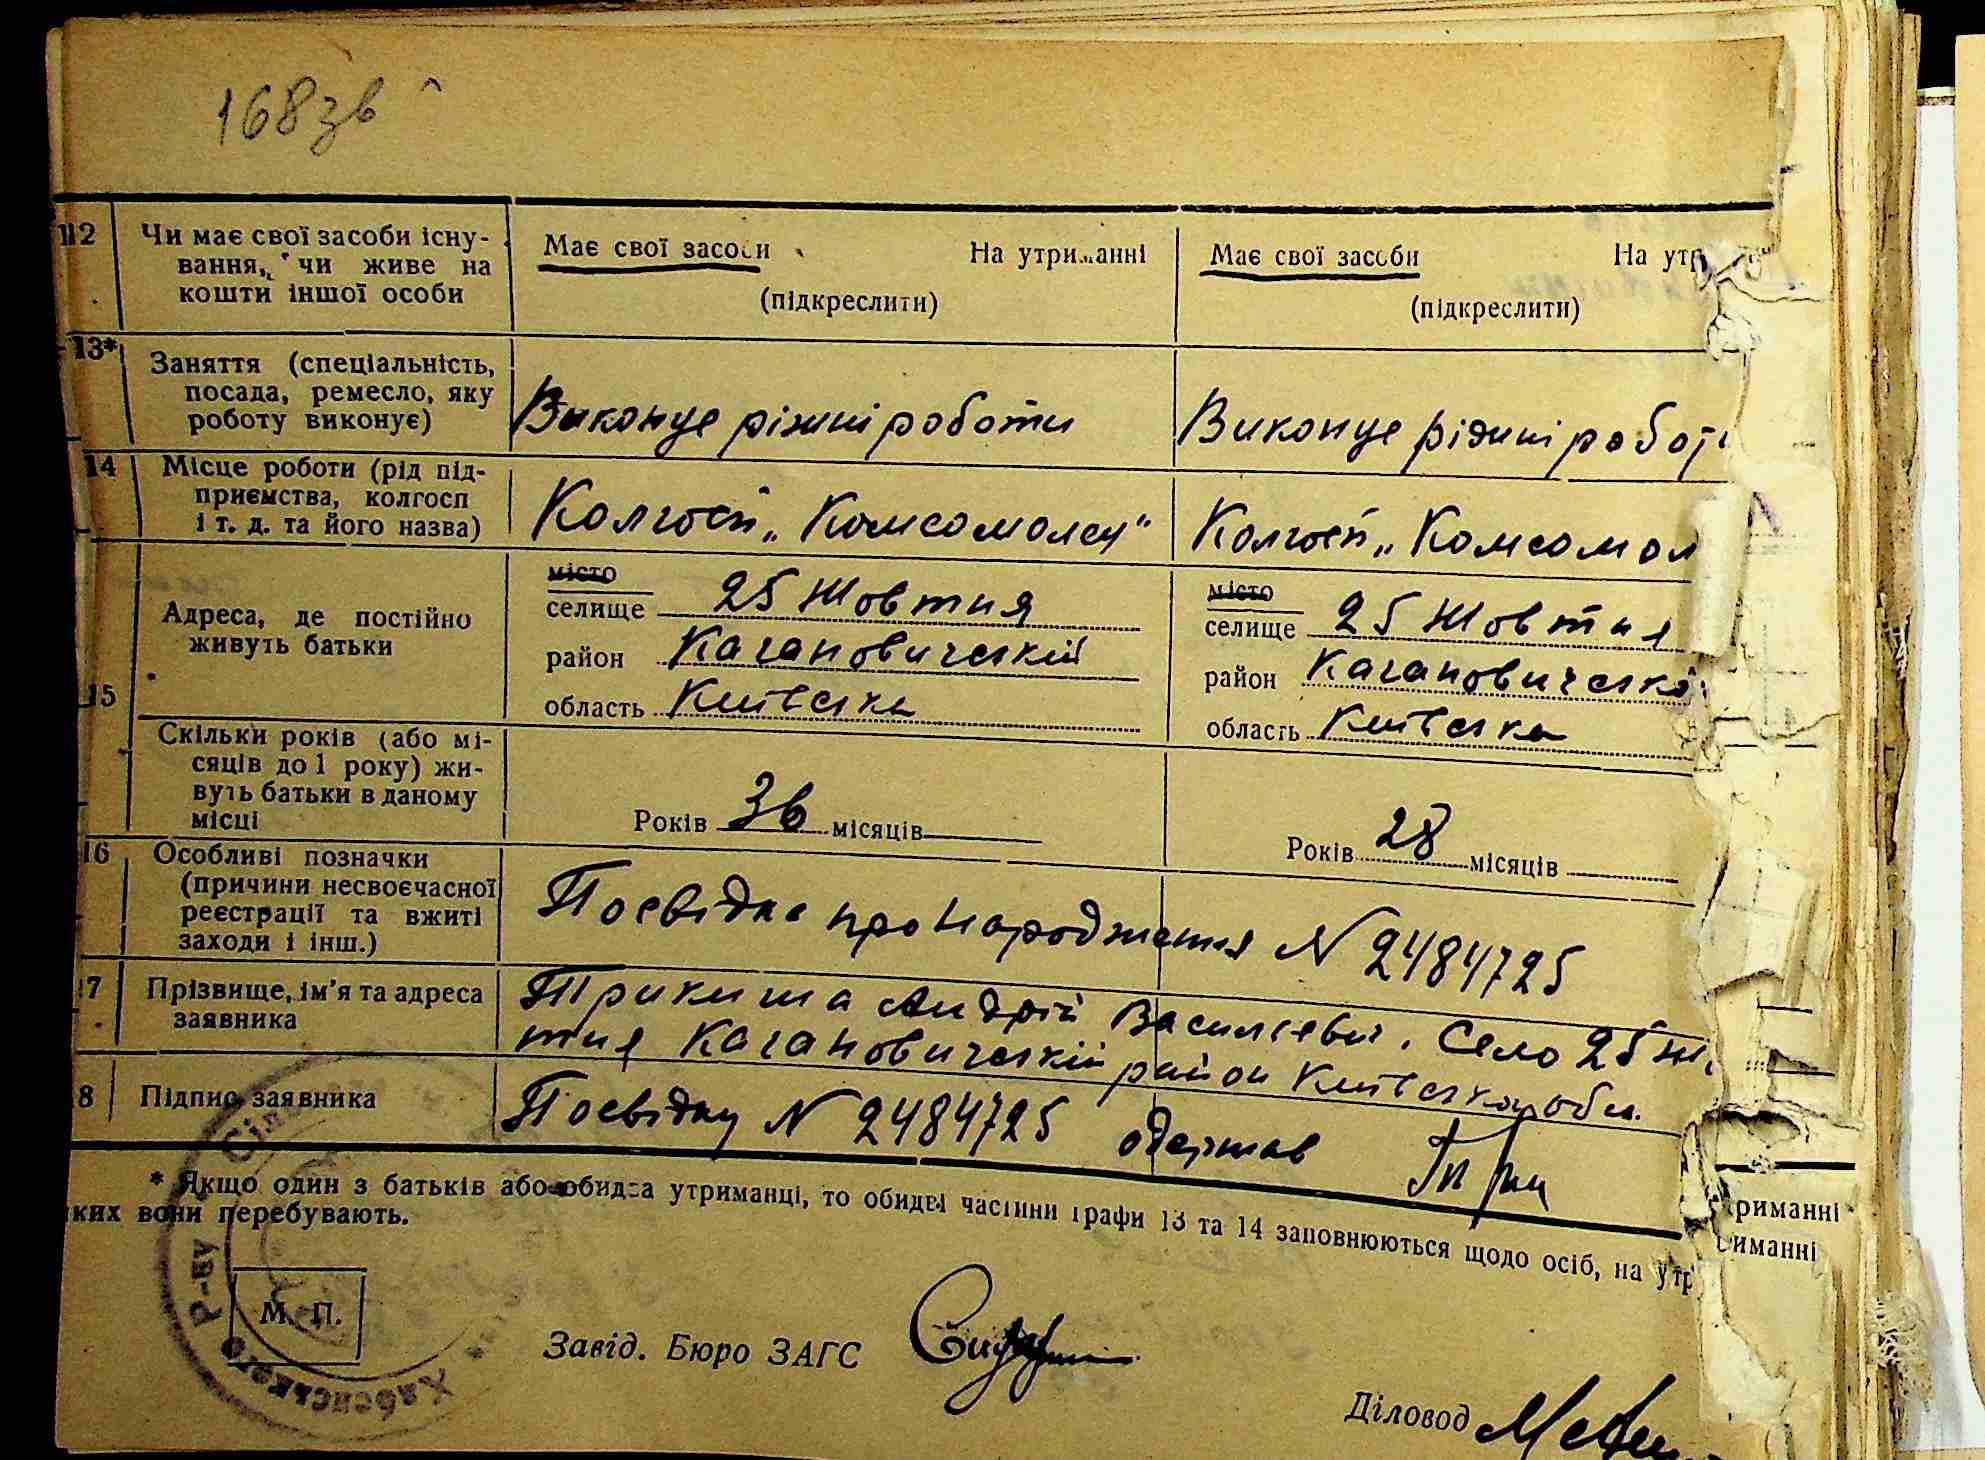 168зв
12 Чи має свої засоби існу-
вання, чи живе на
кошти іншої особи
Має свої засоби На утриманні
(підкреслити)
Має свої засоби На утр
(підкреслити)
13* Заняття (спеціальність,
посада, ремесло, яку
роботу виконує)
Виконує ріжні роботи
Виконує ріжні робот
14 Місце роботи (рід під-
приємства, колгосп
і т. д. та його назва)
Колгосп „Комсомолец"
Колгосп „Комсомол
15 Адреса, де постійно
живуть батьки
місто
селище 25 Жовтня
район Кагановичський
область Київська
місто
селище 25 Жовтня
район Кагановичськ
область Київська
Скільки років (або мі-
сяців до 1 року) жи-
вуть батьки в даному
місці
Років 36 місяців
Років 28 місяців
16 Особливі позначки
(причини несвоєчасної
реєстрації та вжиті
заходи і інш.)
Посвідка про народження N 2484725
17 Прізвище, ім'я та адреса
заявника
Андрій Село 25 Жов
тня Кагановичський район Київська обл.
18 Підпис заявника
Посвідку N 2484725 одержав
* Якщо один з батьків або обидва утриманці, то обидві частини графи 13 та 14 заповнюються щодо осіб, на утр
ких вони перебувають.
риманні
иманні
М. П.
Хабенського Р-ву
Завід. Бюро ЗАГС
Діловод